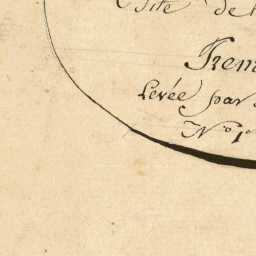 Côte de l
Trem
Levée par
N° 1°